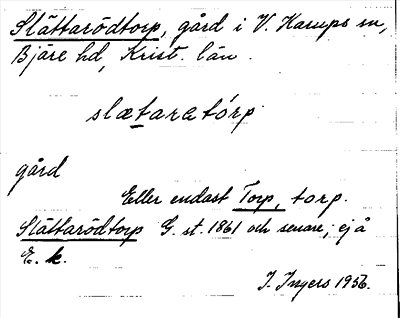 Slättarödtorp, gård i V. Karups sn,
Bjäre hd, Krist. län.
slætaratórp
gård
Eller endast Torp, torp.
Slättarödtorp G. st. 1861 och senare; ej å
E. k.
I. Ingers 1956.